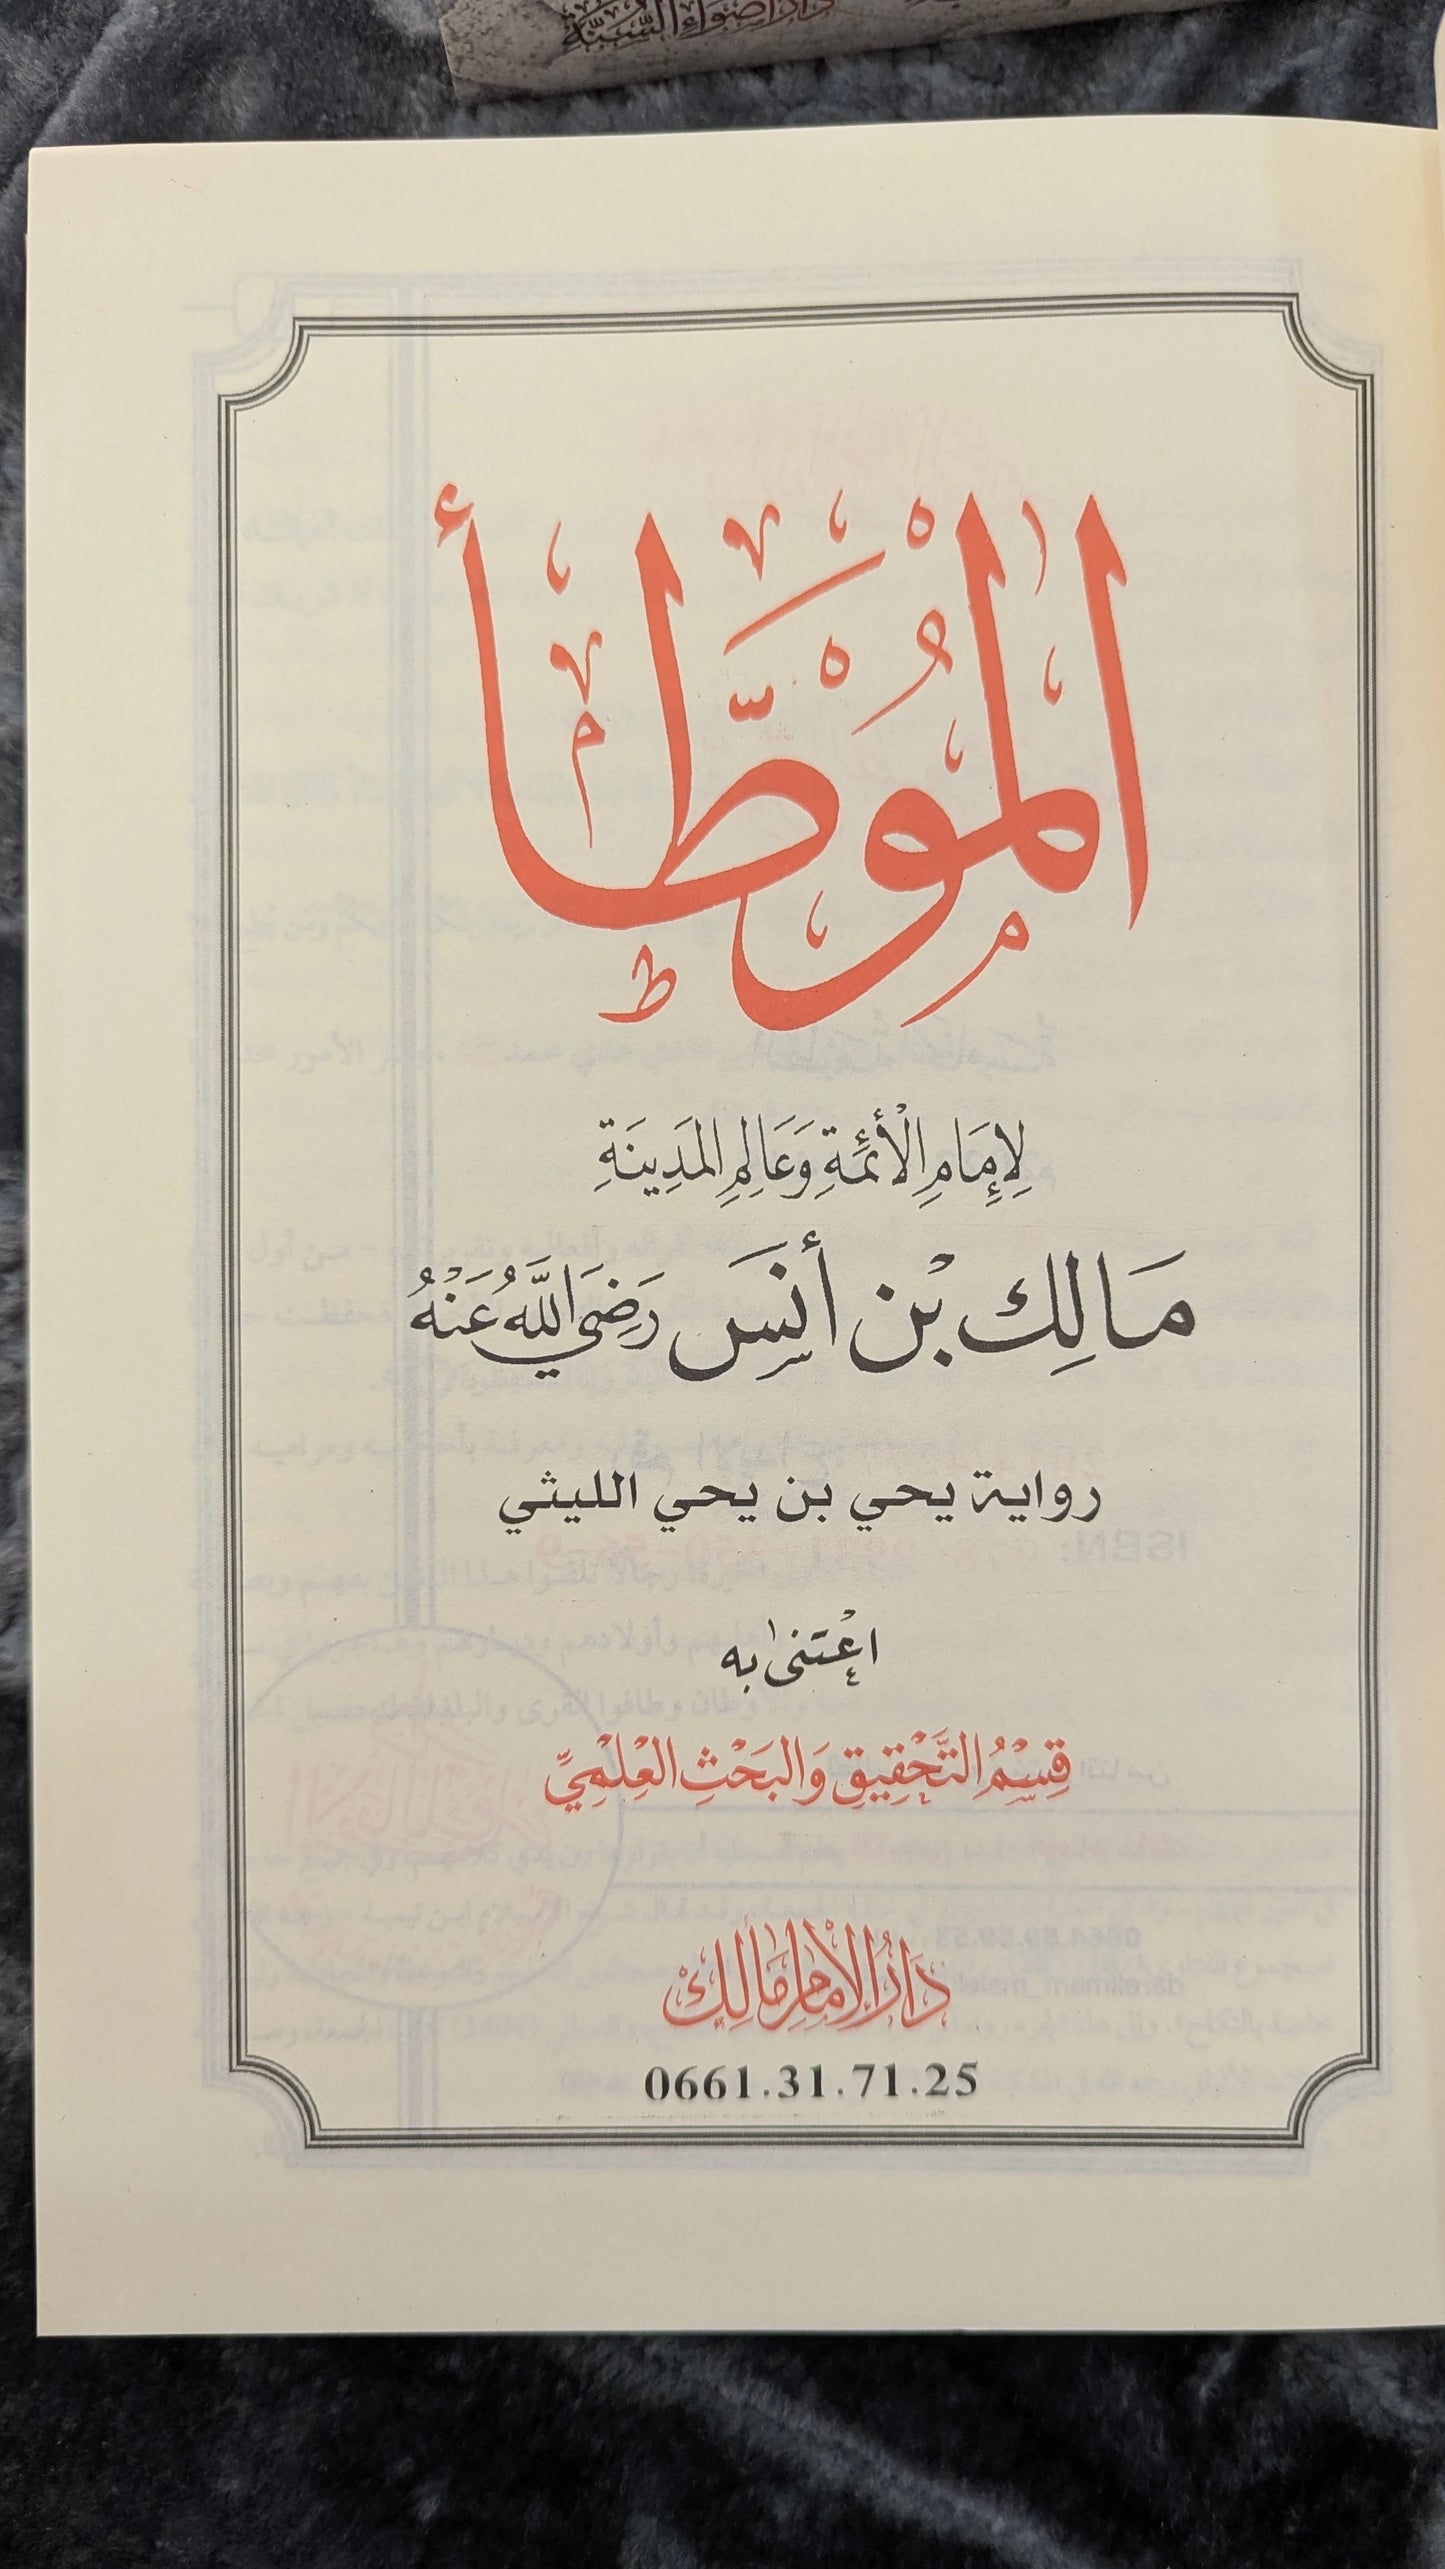 دار أضواء السنة
الموطأ
لِإِمَامِ الْأَئِمَّةِ وَعَالِمِ المَدِينَةِ
مَالِك بْن أنَس رَضِيَ اللَّهُ عَنْهُ
رواية يحي بن يحي الليثي
اعْتنى به
قِسْمُ التَّحْقِيقِ وَالبَحْثِ العِلْمِيِّ
دَارُ الإمَامِ مَالِك
0661.31.71.25